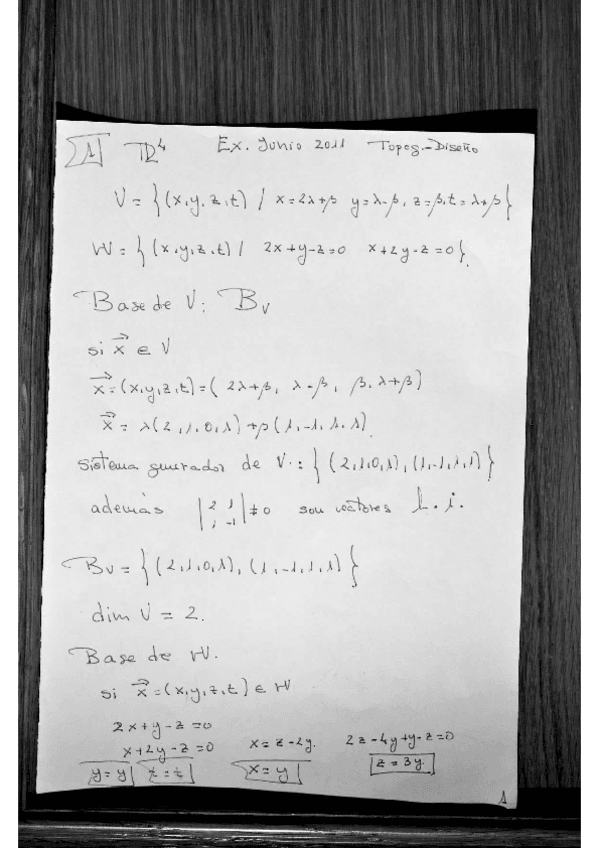 1 ℝ⁴ Ex. Junio 2011 Topog.-Diseño
V = { (x,y,z,t) / x=2λ+β y=λ-β, z=β, t=λ+β }
W = { (x,y,z,t) / 2x+y-z=0 x+2y-z=0 }.
Base de V: B_V
si x⃗ ∈ V
x⃗ = (x,y,z,t) = ( 2λ+β, λ-β, β, λ+β )
x⃗ = λ(2,1,0,1) + β(1,-1,1,1).
Sistema generador de V: { (2,1,0,1), (1,-1,1,1) }
además |2 1; 1 -1| ≠ 0 son vectores l.i.
B_V = { (2,1,0,1), (1,-1,1,1) }
dim V = 2.
Base de W.
si x⃗ = (x,y,z,t) ∈ W
2x+y-z=0
x+2y-z=0 x=z-2y. 2z-4y+y-z=0
y=y t=t x=y z=3y.
1